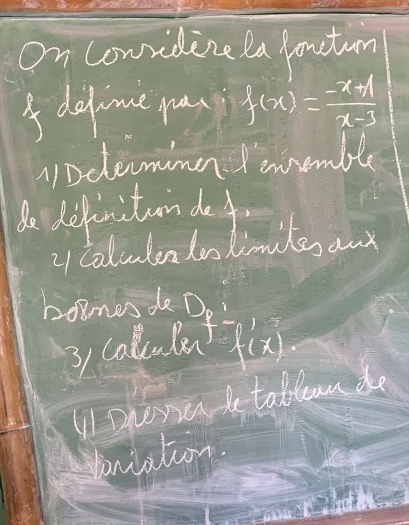 On considère la fonction
f définie par : f(x) = \frac{-x+1}{x-3}
1) Determiner l'ensemble
de définition de f.
2) Calculer les limites aux
bornes de Df.
3) Calculer f'(x).
4) Dresser le tableau de
variation.